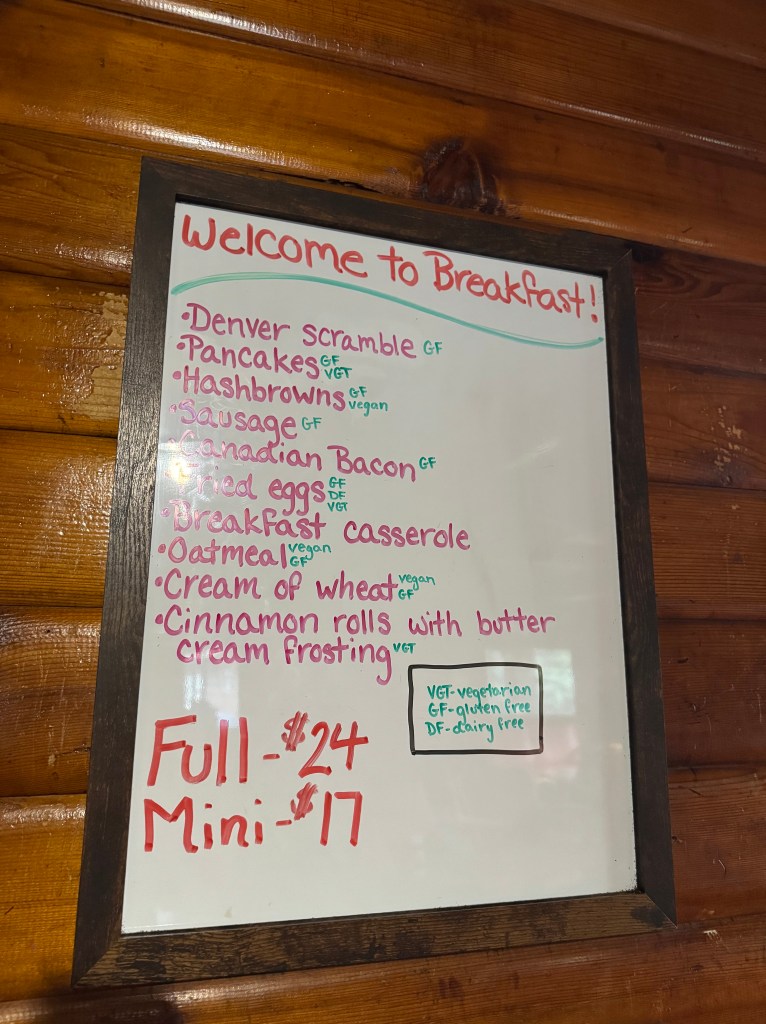 Welcome to Breakfast!
•Denver scramble GF
•Pancakes GF VGT
•Hashbrowns GF vegan
•Sausage GF
•Canadian Bacon GF
•Fried eggs GF DF VGT
•Breakfast casserole
•Oatmeal vegan GF
•Cream of wheat vegan GF
•Cinnamon rolls with butter
cream frosting VGT
VGT-vegetarian
GF-gluten free
DF-dairy free
Full-$24
Mini-$17